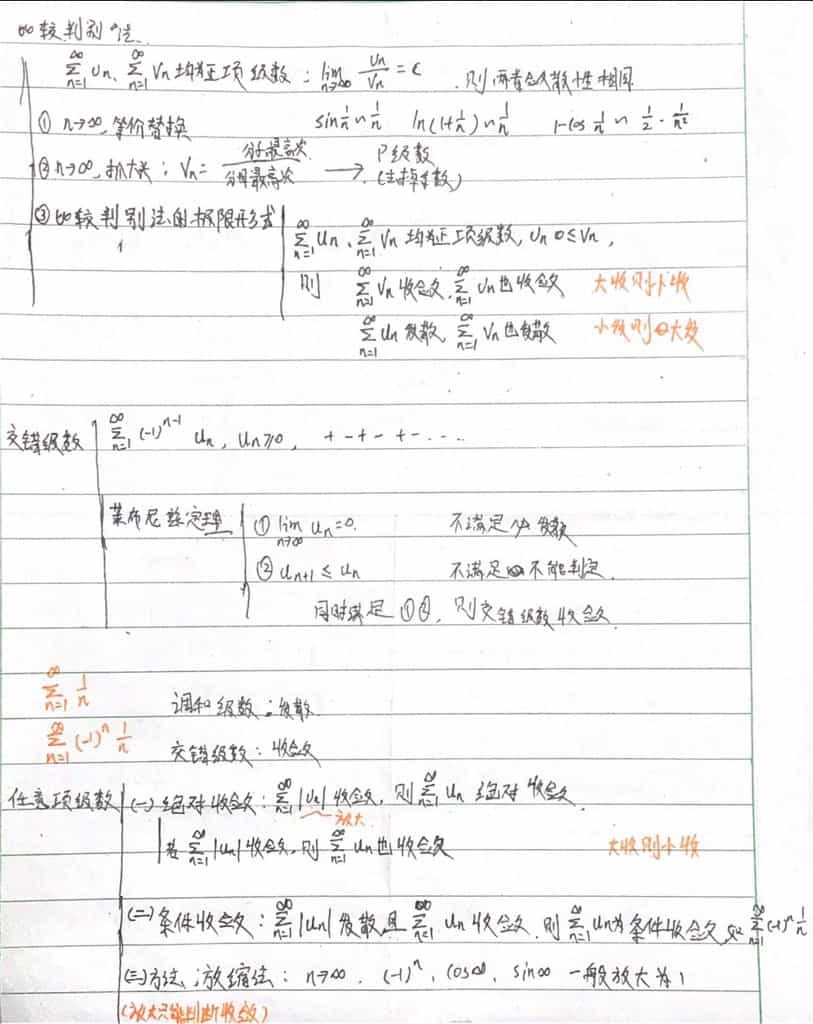 比较判别法
∑_{n=1}^{∞} Un、∑_{n=1}^{∞} Vn 均为正项级数：lim_{n→∞} Un/Vn = c 则两者敛散性相同
① n→∞, 等价替换 sin 1/n ~ 1/n ln(1+1/n) ~ 1/n 1-cos 1/n ~ 1/2 · 1/n²
② n→∞, 抓大头：Vn = 分子最高次/分母最高次 → P级数 (去掉系数)
③ 比较判别法的极限形式 ∑_{n=1}^{∞} Un、∑_{n=1}^{∞} Vn 均为正项级数, Un 0≤Vn,
则 ∑_{n=1}^{∞} Vn 收敛, ∑_{n=1}^{∞} Un 也收敛 大收则小收
∑_{n=1}^{∞} Un 发散, ∑_{n=1}^{∞} Vn 也发散 小散则大散
交错级数 ∑_{n=1}^{∞} (-1)^{n-1} Un, Un≥0, + - + - + - ....
莱布尼兹定理 ① lim_{n→∞} Un=0. 不满足 发散
② Un+1 ≤ Un 不满足 不能判定.
同时满足①②, 则交错级数收敛
∑_{n=1}^{∞} 1/n 调和级数：发散.
∑_{n=1}^{∞} (-1)^n 1/n 交错级数：收敛
任意项级数 (一) 绝对收敛：∑_{n=1}^{∞} |Un| 收敛, 则 ∑_{n=1}^{∞} Un 绝对收敛.
放大
若 ∑_{n=1}^{∞} |Un| 收敛, 则 ∑_{n=1}^{∞} Un 也收敛 大收则小收
(二) 条件收敛：∑_{n=1}^{∞} |Un| 发散且 ∑_{n=1}^{∞} Un 收敛. 则 ∑_{n=1}^{∞} Un 为条件收敛 ∑_{n=1}^{∞} (-1)^n 1/n
(三) 方法：放缩法：n→∞, (-1)^n, cos∞, sin∞ 一般放大为1
(放大只能判断收敛)